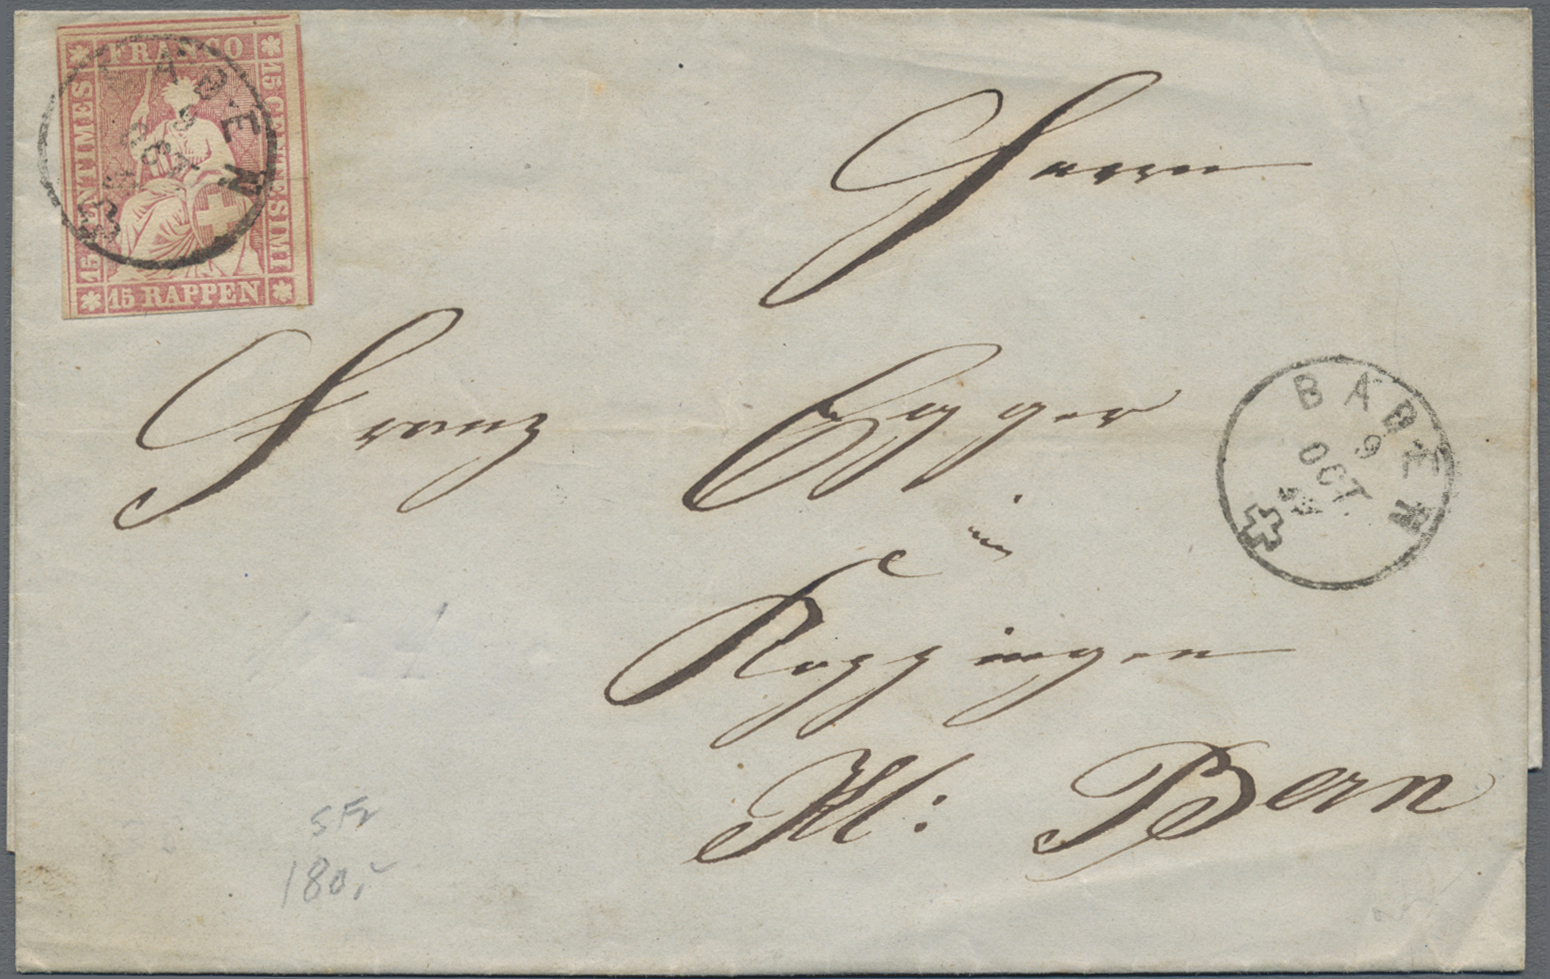 FRANCO
15 CENTESIMI
15 CENTIMES
15 RAPPEN
BADEN
9
OCT
Herrn
Franz Egger
in
Koppingen
Kt: Bern
BADEN
9
OCT
SFr
180,-